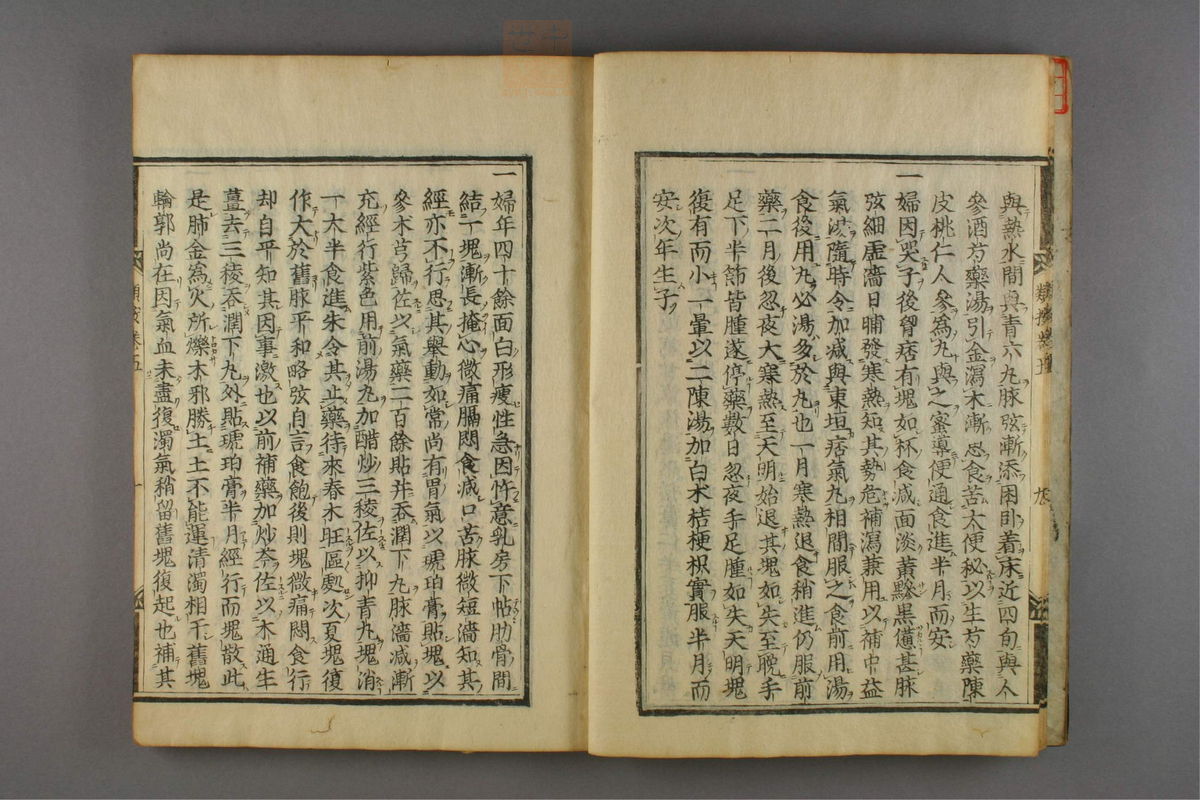 與熱水間與青六丸脉弦漸添困卧着床近四旬與人
參酒芍藥湯引金瀉木漸思食苦大便秘以生芍藥陳
皮桃仁人參為丸與之蜜導便通食進半月而安
一婦因哭子後胷痞有塊如杯食減面淡黄黲黒憊甚脉
弦細虛澁日晡發寒熱知其勢危補瀉兼用以補中益
氣湯隨時令加減與東垣痞氣丸相間服之食前用湯
食後用丸必湯多於丸也一月寒熱退食稍進仍服前
藥二月後忽夜大寒熱至天明始退其塊如失至晚手
足下半節皆腫遂停藥數日忽夜手足腫如失天明塊
復有而小一暈以二陳湯加白朮桔梗枳實服半月而
安次年生子
一婦年四十餘面白形瘦性急因忤意乳房下帖肋骨間
結一塊漸長掩心微痛膈悶食減口苦脉微短澁知其
經亦不行思其舉動如常尚有胃氣以琥珀膏貼塊以
參朮芎歸佐以氣藥二百餘貼并吞潤下丸脉澁減漸
充經行紫色用前湯丸加醋炒三稜佐以抑青丸塊消
一大半食進朱令其止藥待來春木旺區處次夏塊復
作大於舊脉平和略弦自言食飽後則塊微痛悶食行
却自平知其因事激也以前補藥加炒芩佐以木通生
薑去三稜吞潤下丸外貼琥珀膏半月經行而塊散此
是肺金為火所爍木邪勝土土不能運清濁相干舊塊
輪郭尚在因氣血未盡復濁氣稍留舊塊復起也補其